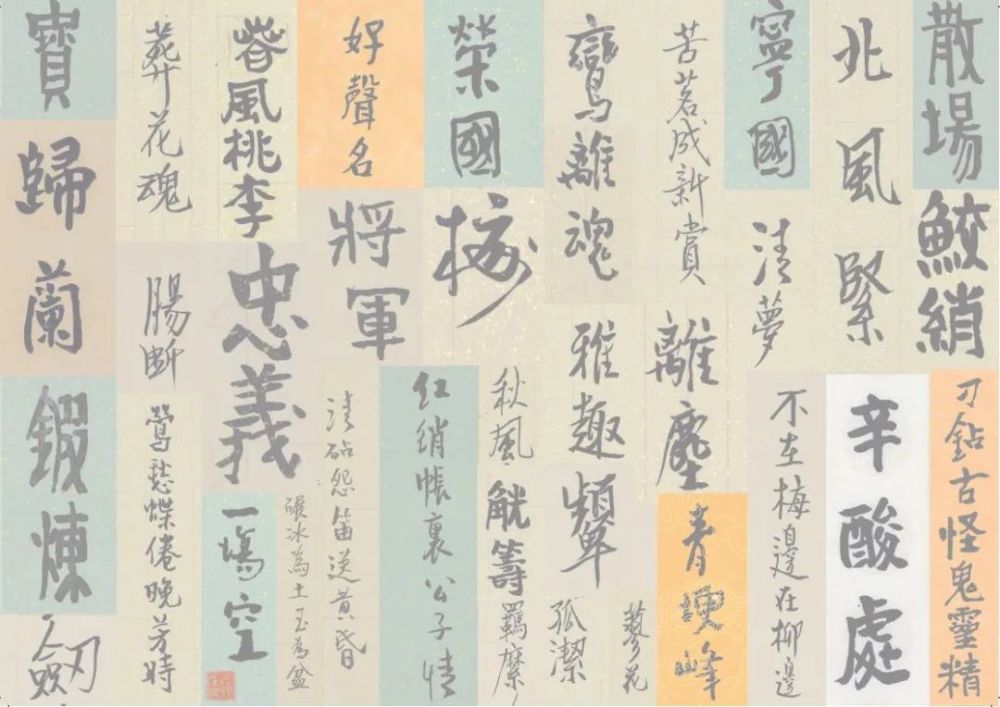 散場
鮫綃
刁鉆古怪鬼靈精
北風緊
辛酸處
寧國
清夢
不在梅邊在柳邊
苦茗成新賞
離塵
青埂峰
鸞離魂
雅趣
顰
蓼花
孤潔
榮國
梅
秋風
觥籌
羈縻
好聲名
將軍
红綃帳裏公子情
春風桃李
忠義
清砧怨笛送黃昏
碾冰為土玉為盆
一場空
葬花魂
腸斷
鶯愁蝶倦晚芳時
寶
歸蘭
鍛煉
劍